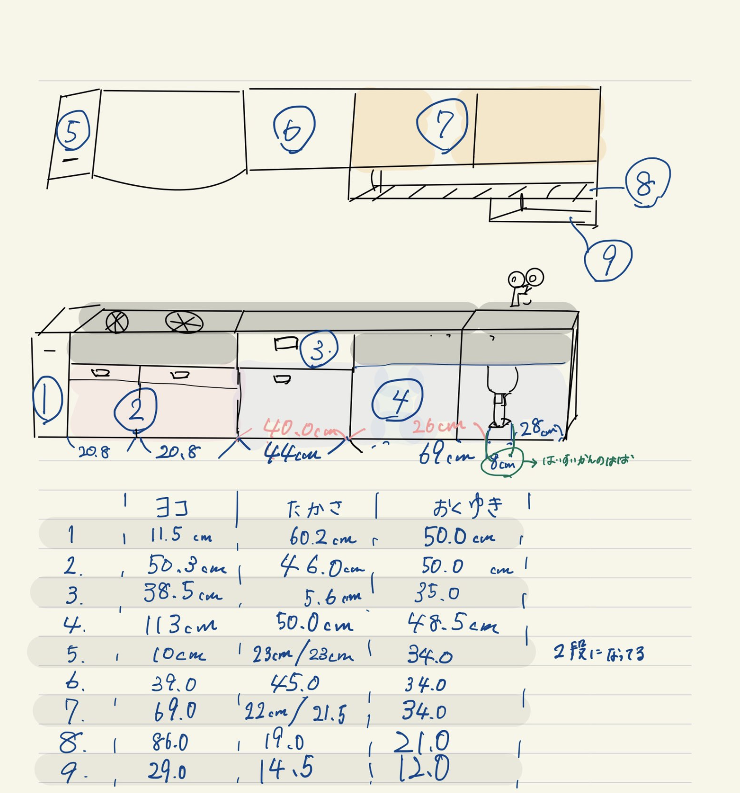 5
6
7
8
9
3.
1
2
4
40.0cm
26cm
28cm
20.8
20.8
44cm
69cm
8cm
→ はいすいかんのはば
ヨコ たかさ おくゆき
1 11.5 cm 60.2cm 50.0 cm
2. 50.3cm 46.0cm 50.0 cm
3. 38.5cm 5.6cm 35.0
4. 113cm 50.0cm 48.5cm
5. 10cm 23cm/23cm 34.0 2段になってる
6. 39.0 45.0 34.0
7. 69.0 22cm/21.5 34.0
8. 86.0 19.0 21.0
9. 29.0 14.5 12.0